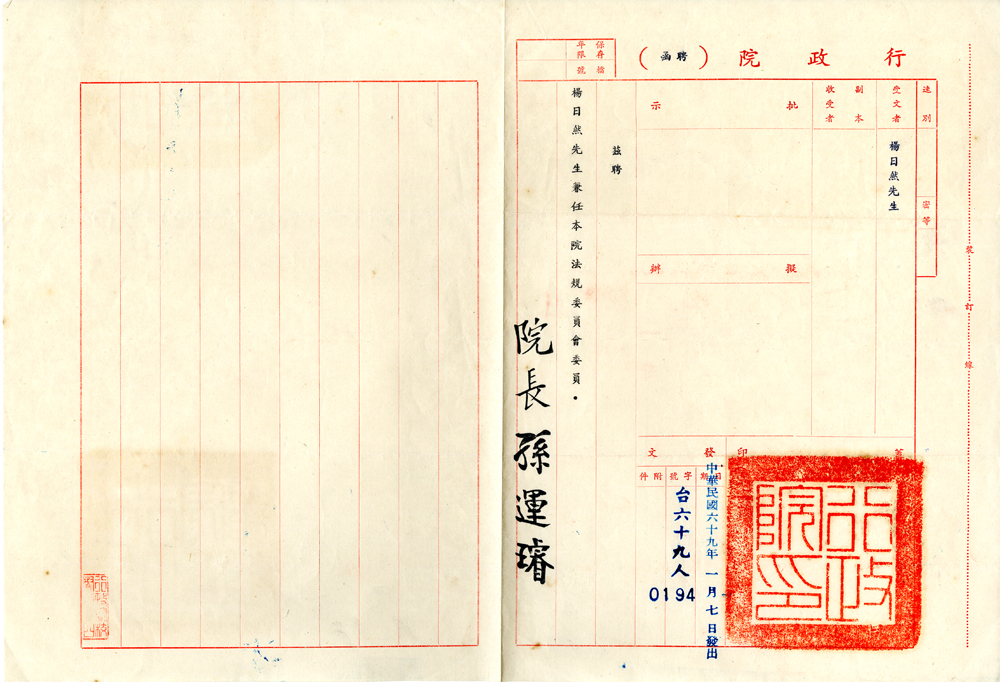 行政院
(聘函)
裝訂線
速別
密等
受文者
楊日然先生
副本
收受者
批示
擬辦
印
發文
日期
中華民國六十九年一月七日發出
字號
台六十九人
0194
附件
行政院印
茲聘
楊日然先生兼任本院法規委員會委員。
院長孫運璿
保存年限
檔號